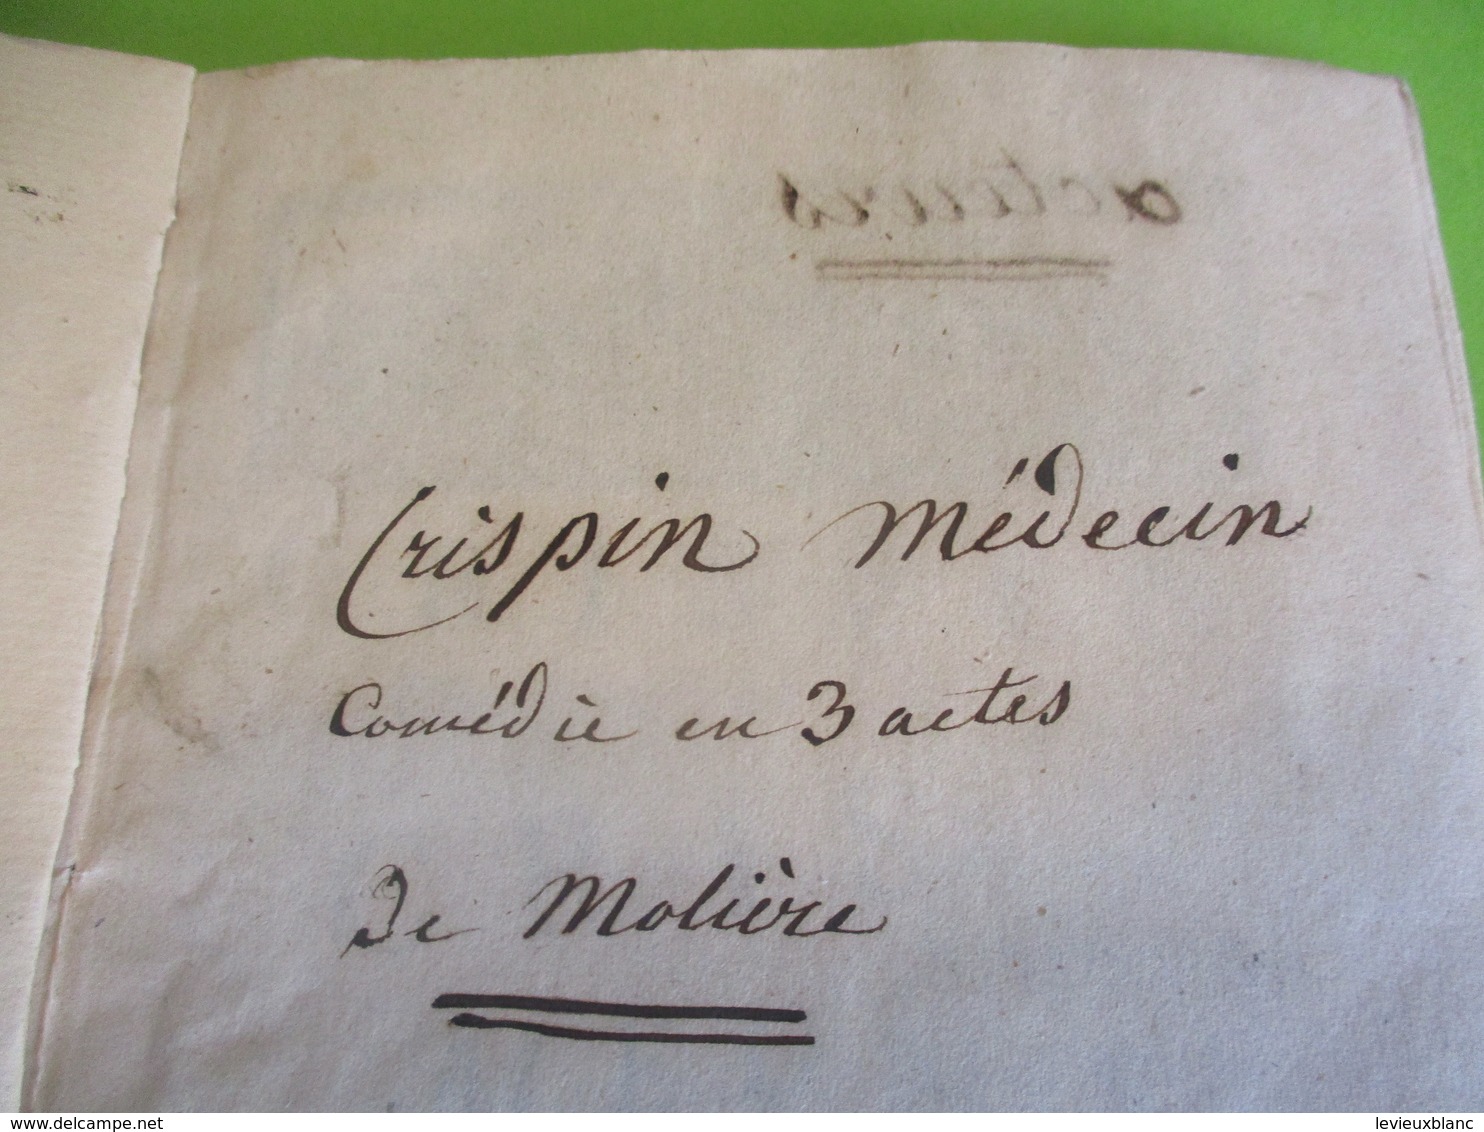 acteurs
Crispin médecin
Comédie en 3 actes
de Molière
www.delcampe.net
levieuxblanc